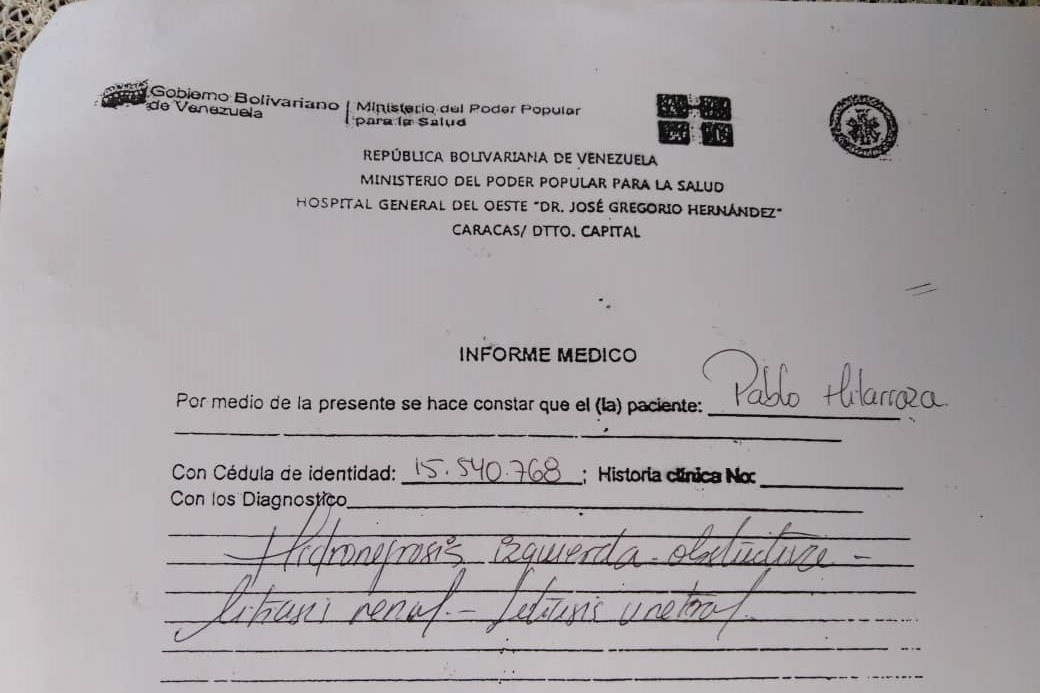 Gobierno Bolivariano de Venezuela | Ministerio del Poder Popular para la Salud
REPÚBLICA BOLIVARIANA DE VENEZUELA
MINISTERIO DEL PODER POPULAR PARA LA SALUD
HOSPITAL GENERAL DEL OESTE "DR. JOSÉ GREGORIO HERNÁNDEZ"
CARACAS/ DTTO. CAPITAL
INFORME MEDICO
Por medio de la presente se hace constar que el (la) paciente: Pablo Hilarraza
Con Cédula de identidad: 15.540.768; Historia clínica No:
Con los Diagnostico
Hidronefrosis izquierda obstructiva -
litiasis renal - litiasis ureteral